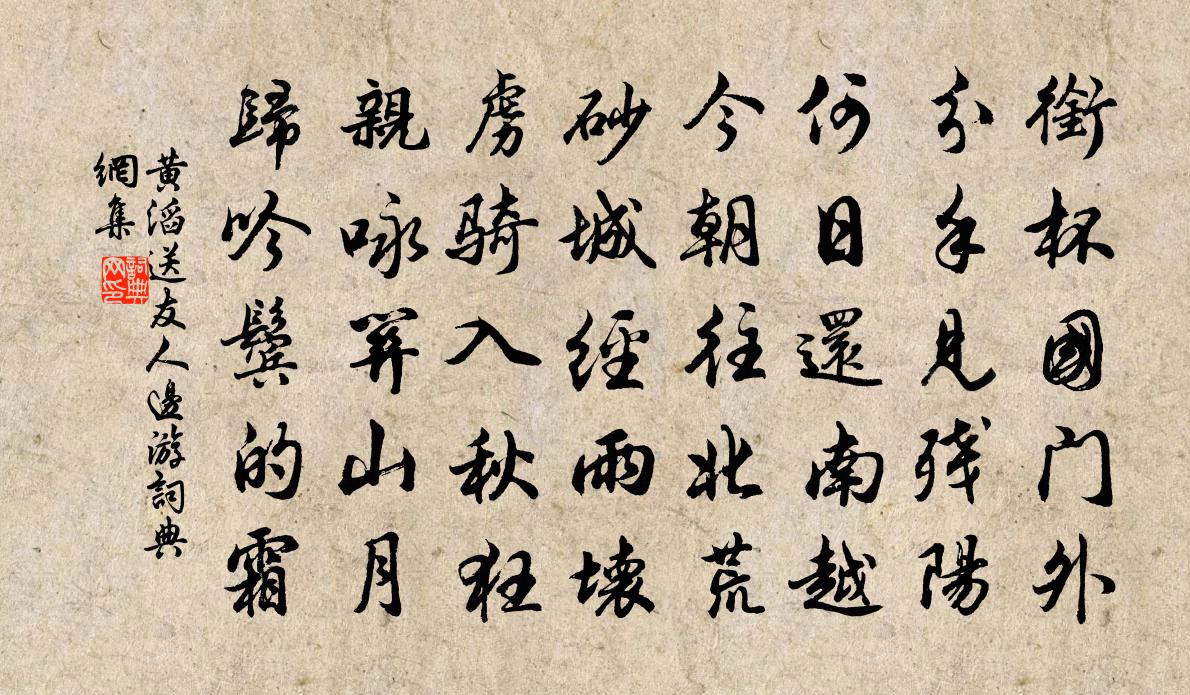 銜杯國门外
分手見残陽
何日還南越
今朝往北荒
砂城經雨壞
虜骑入秋狂
親咏關山月
歸吟鬓的霜
黄滔送友人邊游詞典
網集
詞典
网印